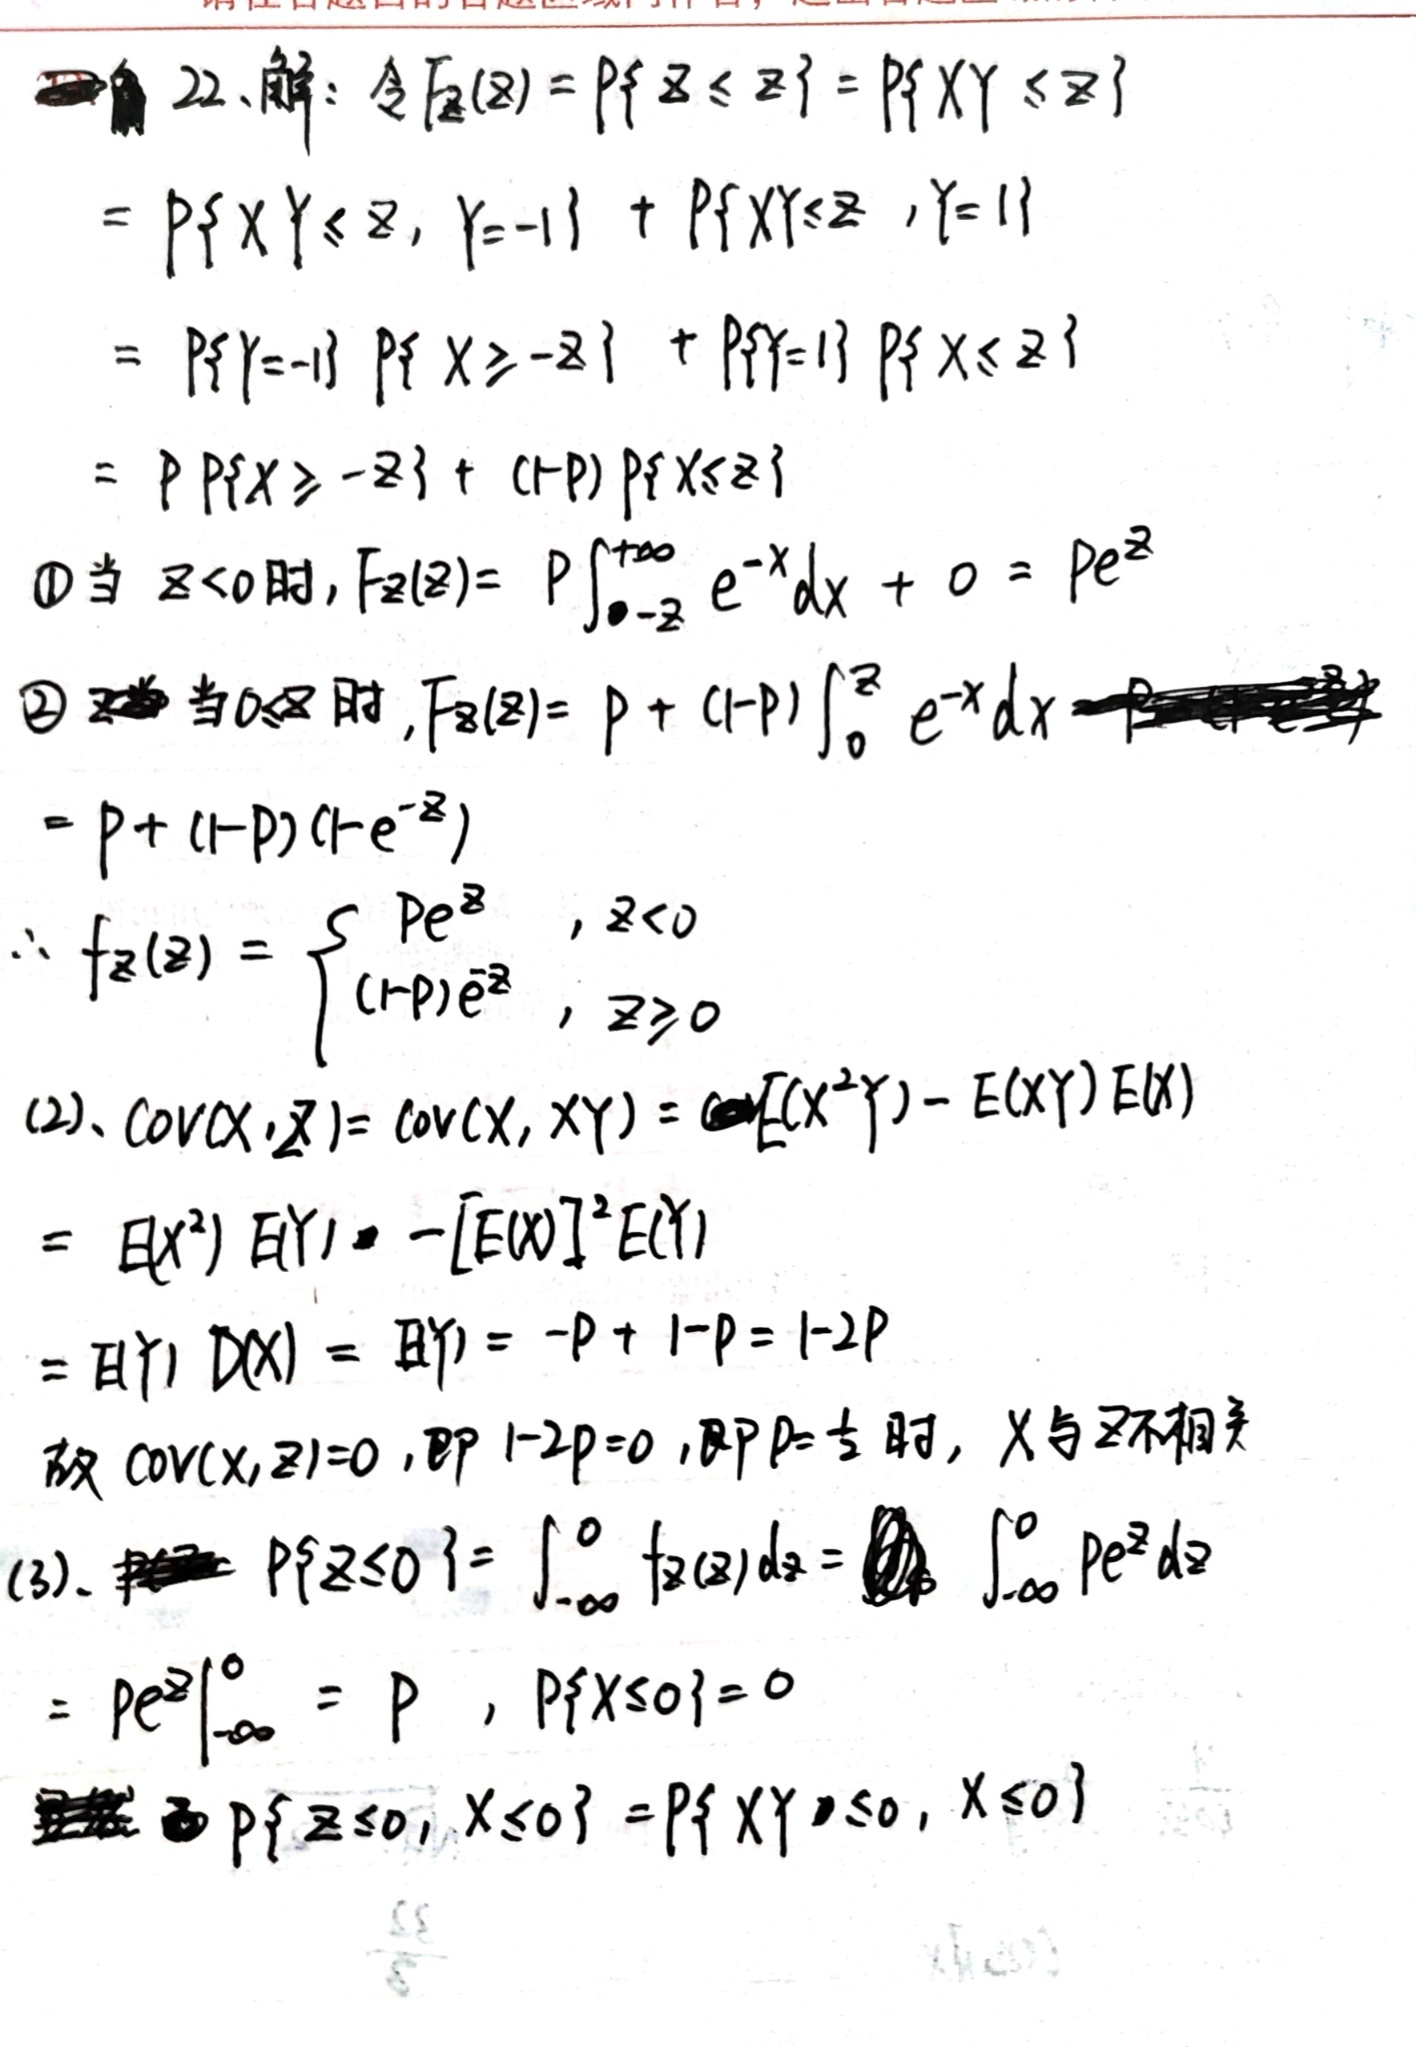 22、解：令 F_Z(z) = P{Z ≤ z} = P{XY ≤ z}
= P{XY ≤ z, Y=-1} + P{XY ≤ z, Y=1}
= P{Y=-1} P{X ≥ -z} + P{Y=1} P{X ≤ z}
= P P{X ≥ -z} + (1-P) P{X ≤ z}
① 当 z<0 时, F_Z(z) = P∫_{-z}^{+∞} e^{-x}dx + 0 = Pe^z
② 当 0≤z 时, F_Z(z) = P + (1-P)∫_0^z e^{-x}dx
= P + (1-P)(1-e^{-z})
∴ f_Z(z) = { Pe^z , z<0
(1-P)e^{-z} , z≥0
(2)、Cov(X,Z) = Cov(X, XY) = E(X²Y) - E(XY)E(X)
= E(X²)E(Y) - [E(X)]²E(Y)
= E(Y) D(X) = E(Y) = -P + 1-P = 1-2P
故 Cov(X,Z)=0, 即 1-2P=0, 即 P=½ 时, X与Z不相关
(3)、P{Z≤0} = ∫_{-∞}^0 f_Z(z)dz = ∫_{-∞}^0 Pe^z dz
= Pe^z|_{-∞}^0 = P , P{X≤0}=0
P{Z≤0, X≤0} = P{XY≤0, X≤0}